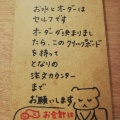 お水とオーダーは
セルフです
オーダーが決まりまし
たら、このクリップボード
を持って
となりの
注文カウンター
まで
お願いします
お会計は